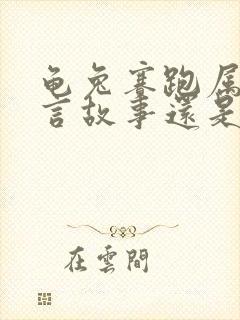 龟兔赛跑属
言故事還是
在雲間